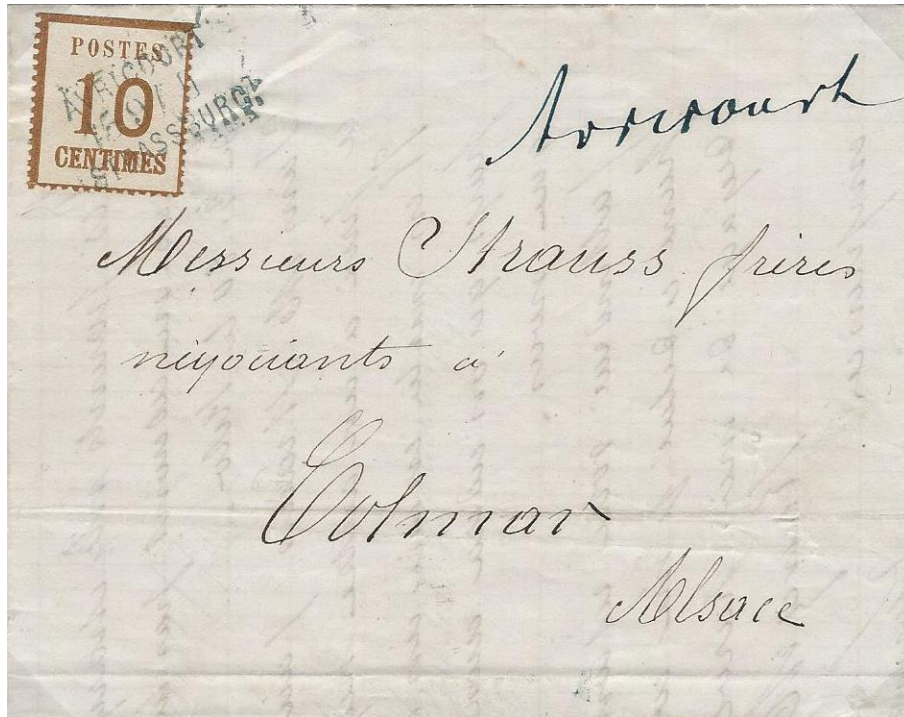 POSTES
10
CENTIMES
AVRICOURT
STRASSBURG
Avricourt
Messieurs Strauss frères
négociants à
Colmar
Alsace